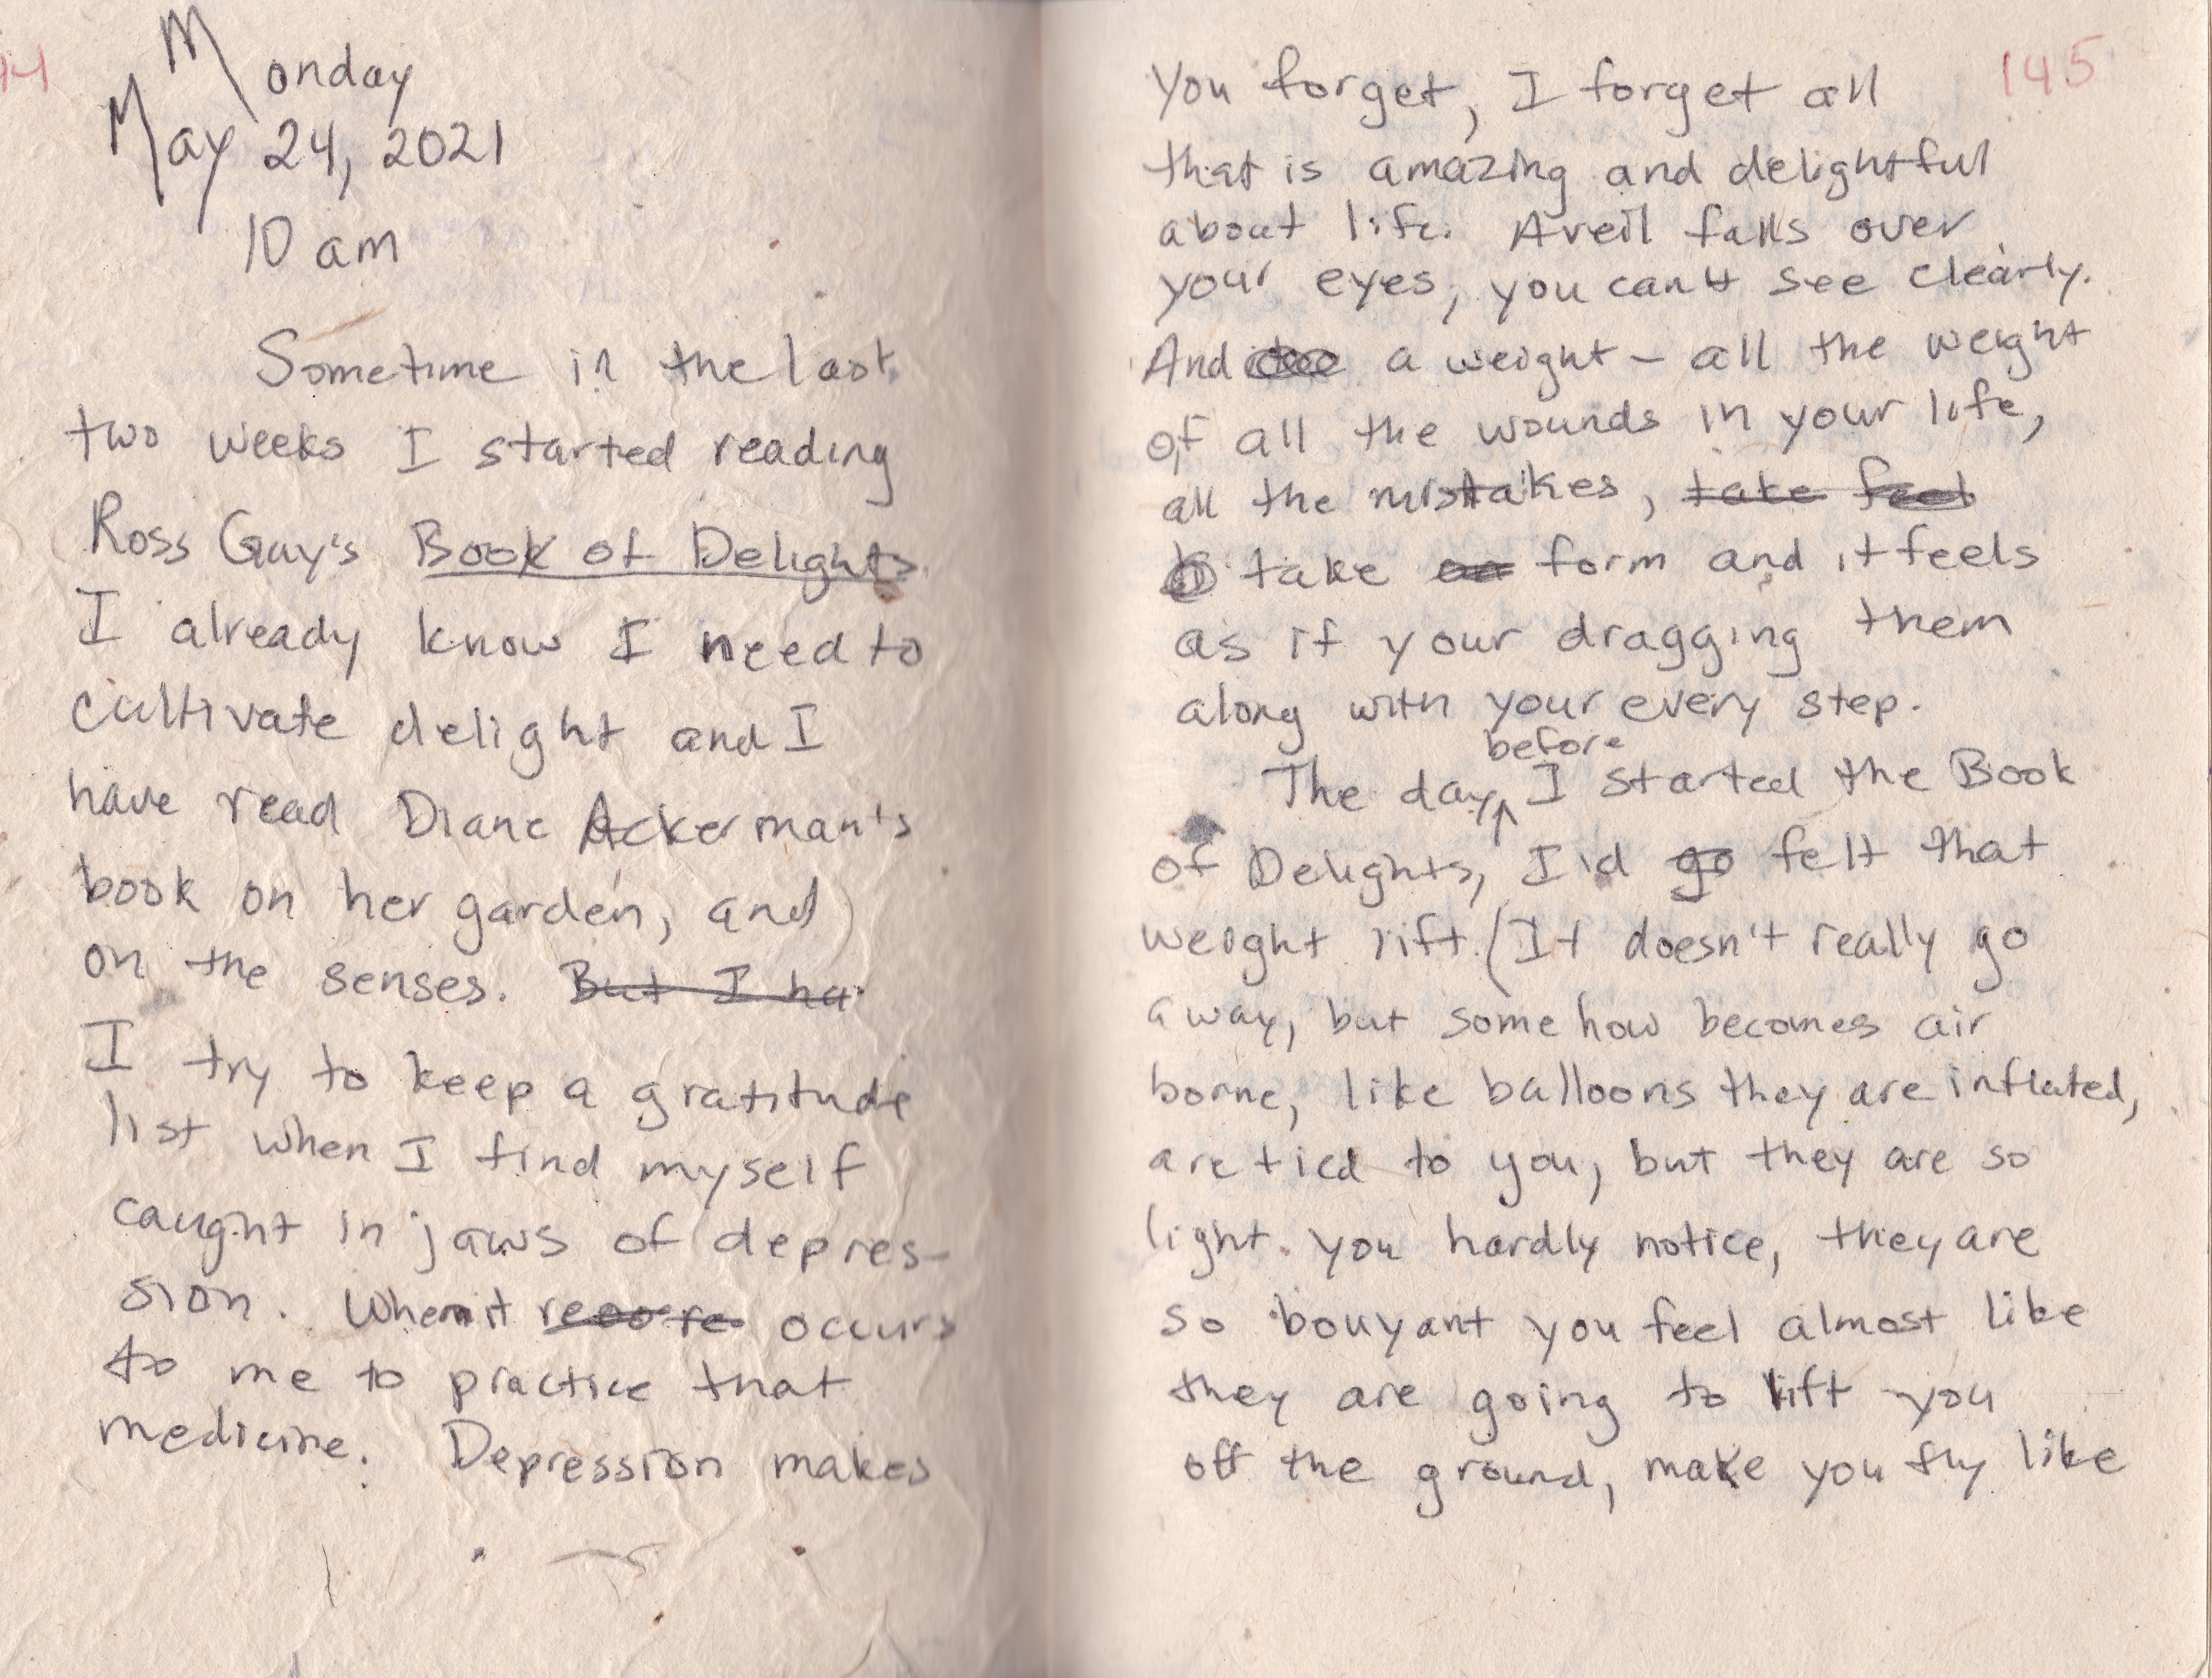 Monday
May 24, 2021
10 am
Sometime in the last
two weeks I started reading
Ross Gay's Book of Delights.
I already know I need to
cultivate delight and I
have read Diane Ackerman's
book on her garden, and
on the senses. But I ha
I try to keep a gratitude
list when I find myself
caught in jaws of depres-
sion. When it occurs
to me to practice that
medicine. Depression makes
145
you forget, I forget all
that is amazing and delightful
about life. A veil falls over
your eyes, you can't see clearly.
And a weight – all the weight
of all the wounds in your life,
all the mistakes, take feel
take form and it feels
as if your dragging them
along with your every step.
before
The day I started the Book
of Delights, I'd go felt that
weight lift. (It doesn't really go
away, but some how becomes air
borne, like balloons they are inflated,
are tied to you, but they are so
light. you hardly notice, they are
so bouyant you feel almost like
they are going to lift you
off the ground, make you fly like